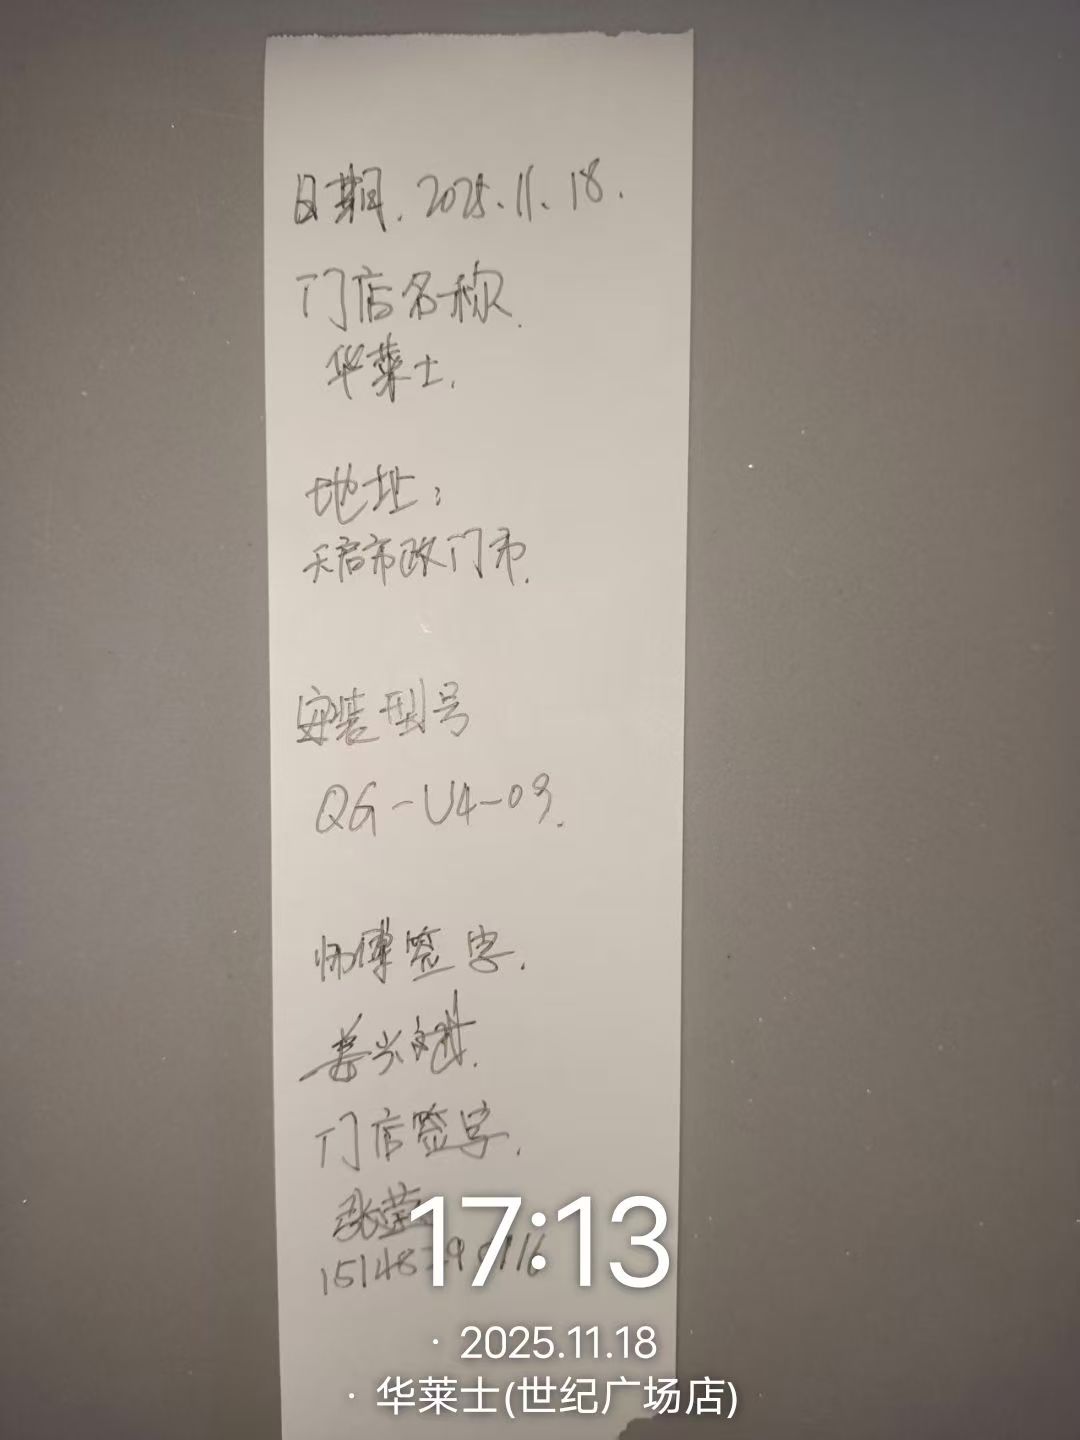 日期. 2025.11.18.
门店名称.
华莱士.
地址:
天启市政门市.
安装型号
QG-U4-09.
师傅签字.
姜兴斌.
门店签字.
17:13
· 2025.11.18
· 华莱士(世纪广场店)